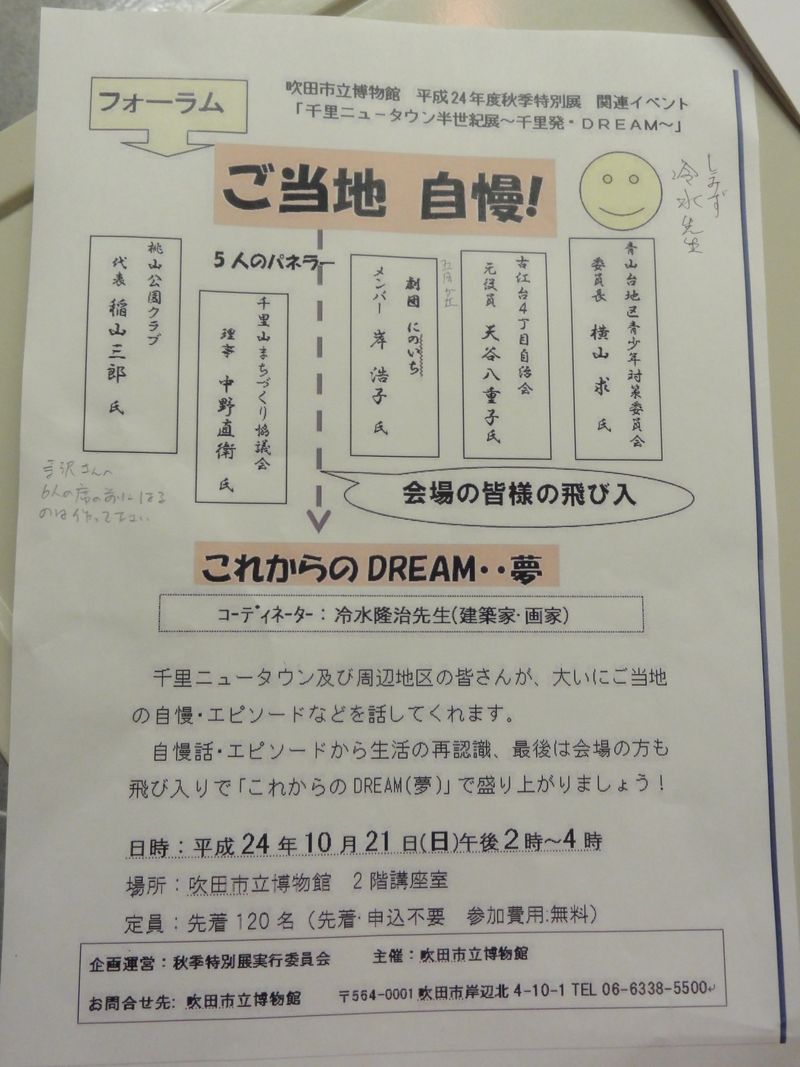 フォーラム
吹田市立博物館　平成24年度秋季特別展　関連イベント
「千里ニュータウン半世紀展～千里発・DREAM～」
ご当地 自慢!
しみず
冷水先生
5人のパネラー
桃山公園クラブ
代表 稲山三郎 氏
千里山まちづくり協議会
理事 中野直衛 氏
劇団 にのいち
メンバー 岸 浩子 氏
古江台4丁目自治会
元役員 天谷八重子氏
青山台地区青少年対策委員会
委員長 横山 求 氏
6人の席の前にはる
のは作って下さい
会場の皆様の飛び入
これからのDREAM・・夢
コーディネーター：冷水隆治先生(建築家・画家)
千里ニュータウン及び周辺地区の皆さんが、大いにご当地
の自慢・エピソードなどを話してくれます。
自慢話・エピソードから生活の再認識、最後は会場の方も
飛び入りで「これからのDREAM(夢)」で盛り上がりましょう！
日時：平成24年10月21日(日)午後2時～4時
場所：吹田市立博物館　2階講座室
定員：先着120名（先着・申込不要　参加費用:無料）
企画運営：秋季特別展実行委員会　　主催：吹田市立博物館
お問合せ先: 吹田市立博物館　　〒564-0001 吹田市岸辺北4-10-1 TEL 06-6338-5500